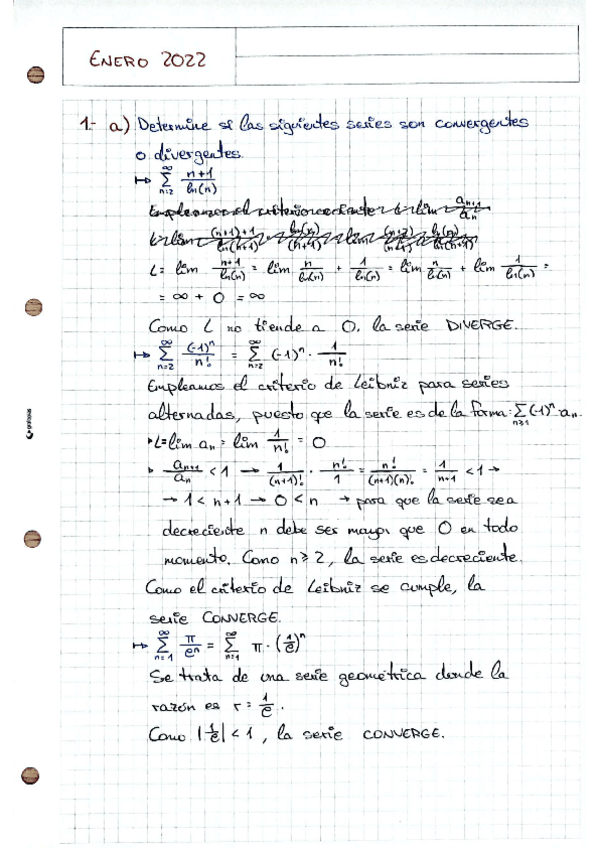 ENERO 2022
1.- a) Determine si las siguientes series son convergentes
o divergentes.
↦ ∞ Σ n=2 n+1 / ln(n)
Empleamos el criterio cociente L = lim aₙ₊₁ / aₙ
L = lim n+1 / ln(n) = lim n / ln(n) + 1 / ln(n) = lim n / ln(n) + lim 1 / ln(n) =
= ∞ + 0 = ∞
Como L no tiende a 0, la serie DIVERGE.
↦ ∞ Σ n=2 (-1)ⁿ / n! = ∞ Σ n=2 (-1)ⁿ · 1 / n!
Empleamos el criterio de Leibniz para series
alternadas, puesto que la serie es de la forma: Σ n≥1 (-1)ⁿ · aₙ
▸ L = lim aₙ = lim 1 / n! = 0
▸ aₙ₊₁ / aₙ < 1 → 1 / (n+1)! · n! / 1 = n! / (n+1)(n)! = 1 / n+1 < 1 →
→ 1 < n+1 → 0 < n → para que la serie sea
decreciente n debe ser mayor que 0 en todo
momento. Como n ≥ 2, la serie es decreciente.
Como el criterio de Leibniz se cumple, la
serie CONVERGE.
↦ ∞ Σ n=1 π / eⁿ = ∞ Σ n=1 π · (1/e)ⁿ
Se trata de una serie geométrica donde la
razón es r = 1/e.
Como |1/e| < 1, la serie CONVERGE.